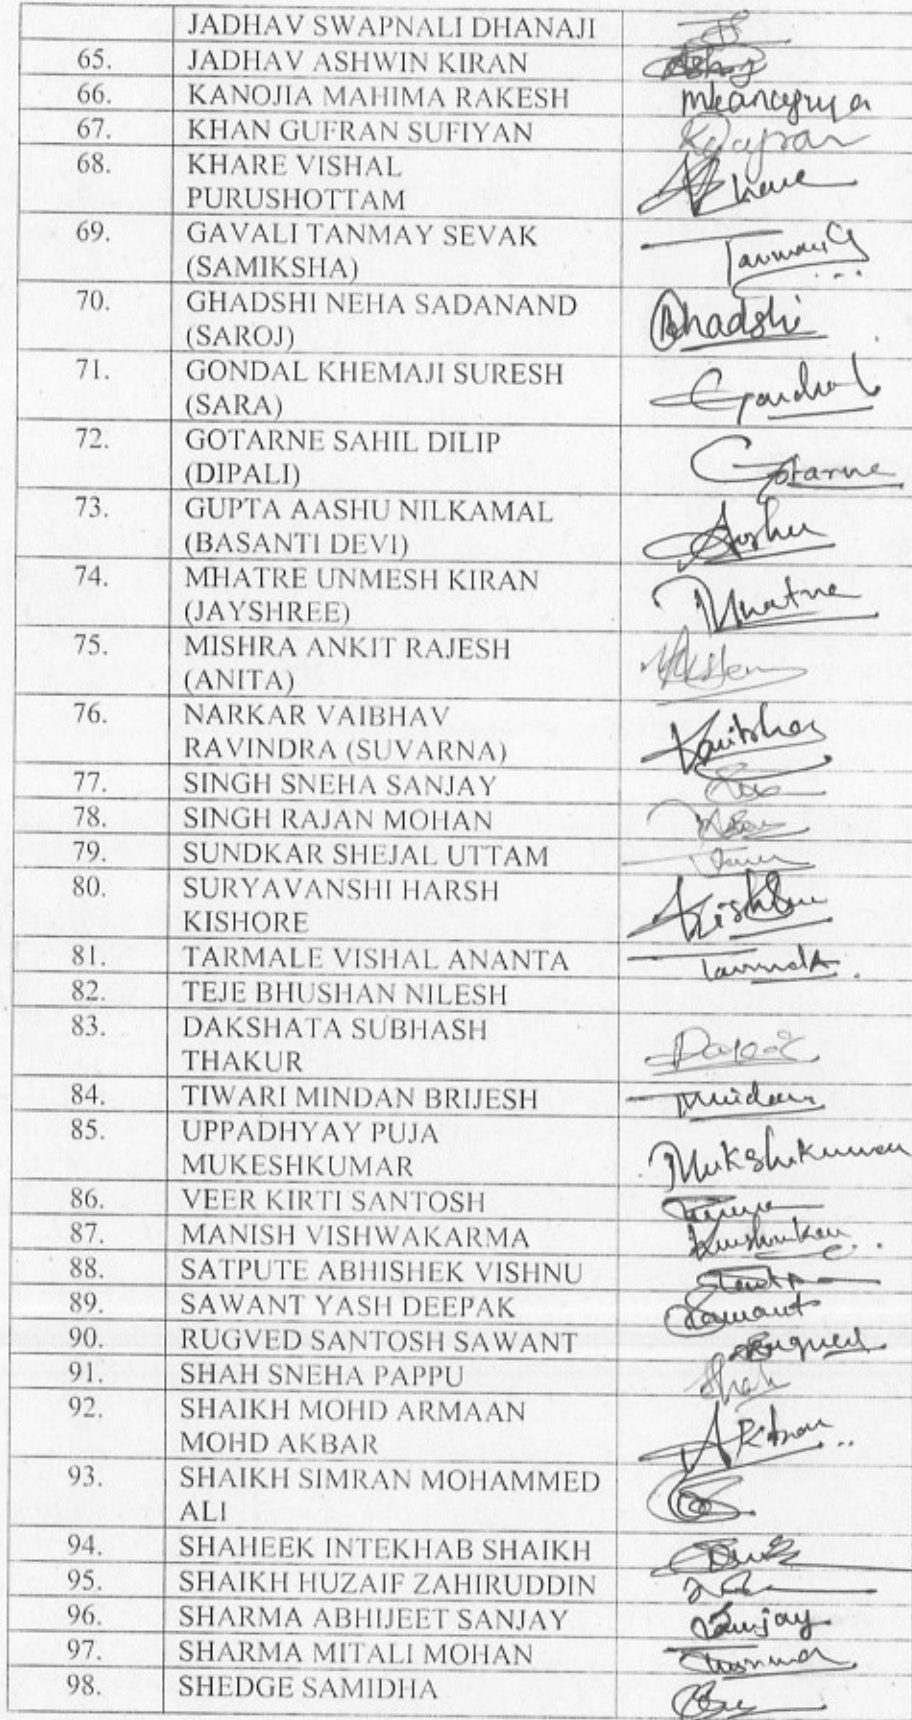 JADHAV SWAPNALI DHANAJI
65. JADHAV ASHWIN KIRAN
66. KANOJIA MAHIMA RAKESH
67. KHAN GUFRAN SUFIYAN
68. KHARE VISHAL
PURUSHOTTAM Khare
69. GAVALI TANMAY SEVAK
(SAMIKSHA) Tanmay G
70. GHADSHI NEHA SADANAND
(SAROJ) Ghadshi
71. GONDAL KHEMAJI SURESH
(SARA)
72. GOTARNE SAHIL DILIP
(DIPALI) Gotarne
73. GUPTA AASHU NILKAMAL
(BASANTI DEVI) Aashu
74. MHATRE UNMESH KIRAN
(JAYSHREE) Mhatre
75. MISHRA ANKIT RAJESH
(ANITA)
76. NARKAR VAIBHAV
RAVINDRA (SUVARNA)
77. SINGH SNEHA SANJAY
78. SINGH RAJAN MOHAN
79. SUNDKAR SHEJAL UTTAM
80. SURYAVANSHI HARSH
KISHORE
81. TARMALE VISHAL ANANTA
82. TEJE BHUSHAN NILESH
83. DAKSHATA SUBHASH
THAKUR
84. TIWARI MINDAN BRIJESH Mindan
85. UPPADHYAY PUJA
MUKESHKUMAR Mukeshkumar
86. VEER KIRTI SANTOSH
87. MANISH VISHWAKARMA
88. SATPUTE ABHISHEK VISHNU
89. SAWANT YASH DEEPAK Sawant
90. RUGVED SANTOSH SAWANT Rugved
91. SHAH SNEHA PAPPU Shah
92. SHAIKH MOHD ARMAAN
MOHD AKBAR
93. SHAIKH SIMRAN MOHAMMED
ALI
94. SHAHEEK INTEKHAB SHAIKH
95. SHAIKH HUZAIF ZAHIRUDDIN
96. SHARMA ABHIJEET SANJAY Sanjay
97. SHARMA MITALI MOHAN
98. SHEDGE SAMIDHA